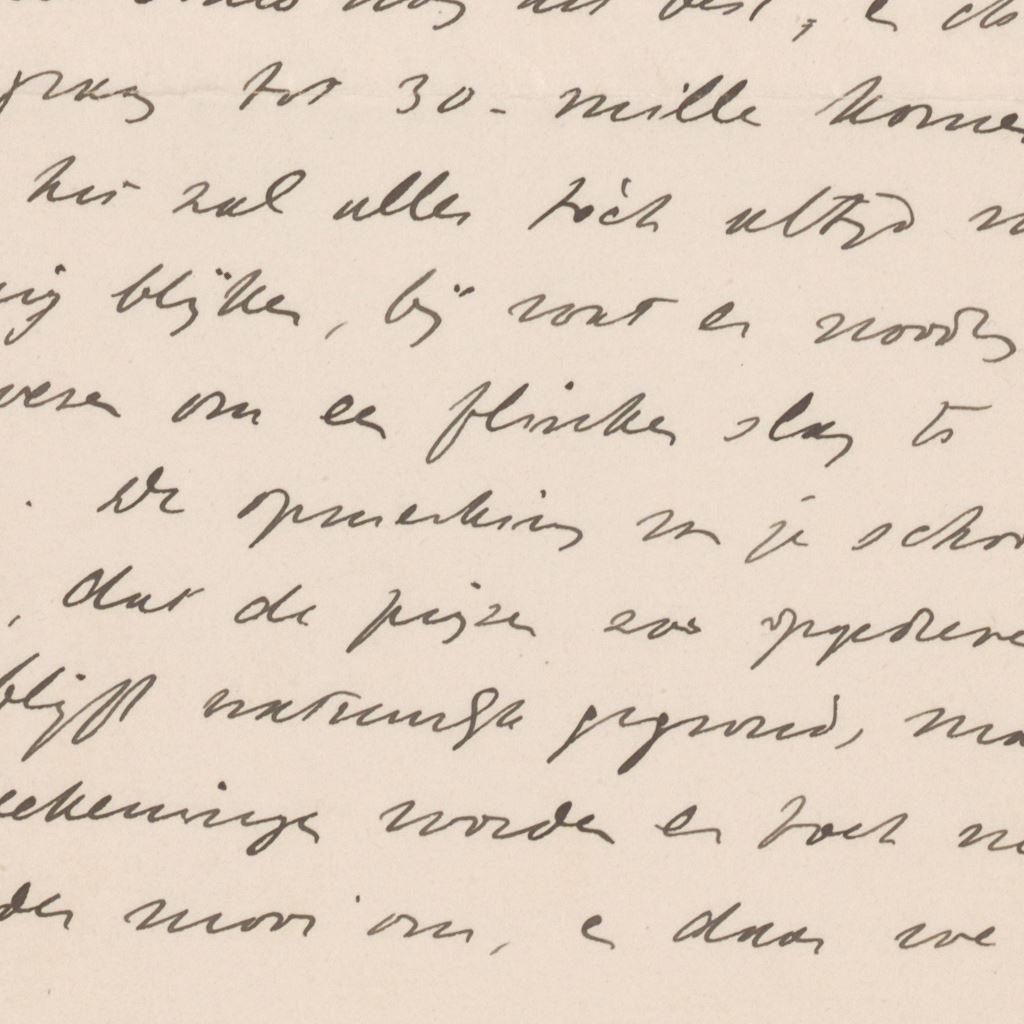 nog het best, en als
graag tot 30 - mille komen
het zal alles tóch altijd
ig blijken, bij wat er noodig
wezen om een flinken slag te
. De opmerking van je schoon
, dat de prijzen zoo opgedreven
blijft natuurlijk gegrond, maar
eekeningen worden er toch
der mooi om, en daar we